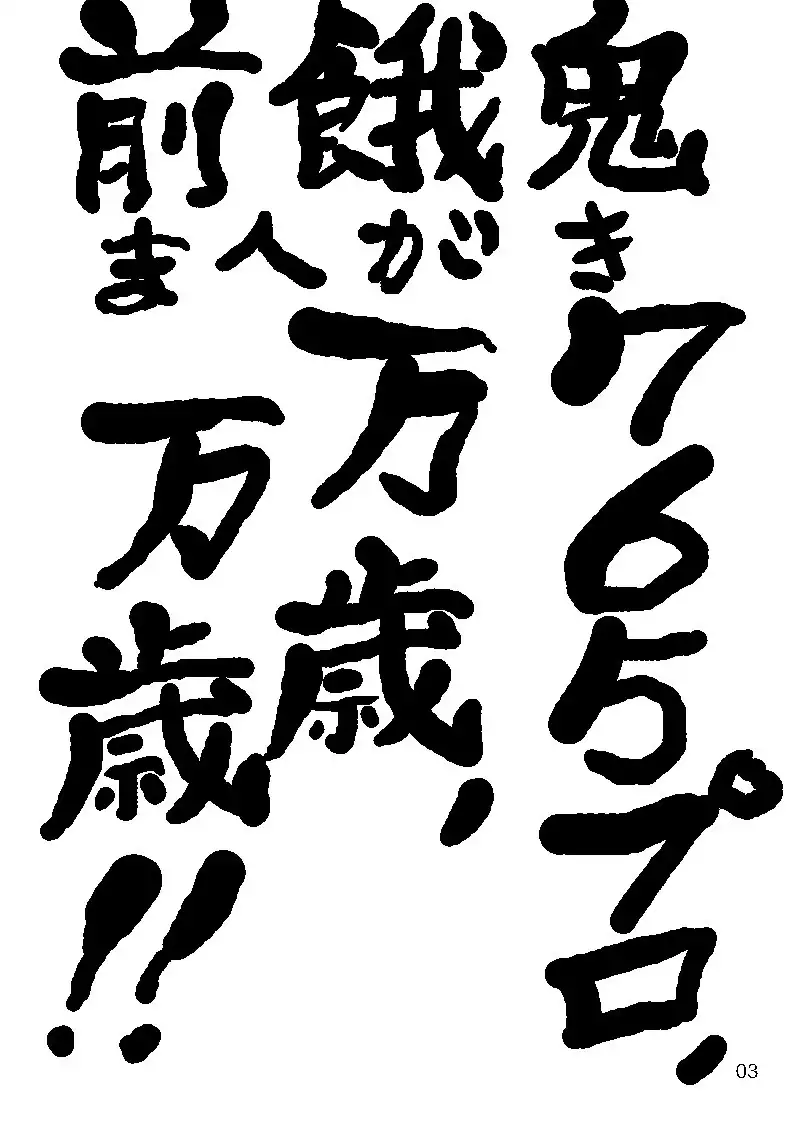 鬼き765プロ,
餓が万歳,
前まへ万歳!!
03